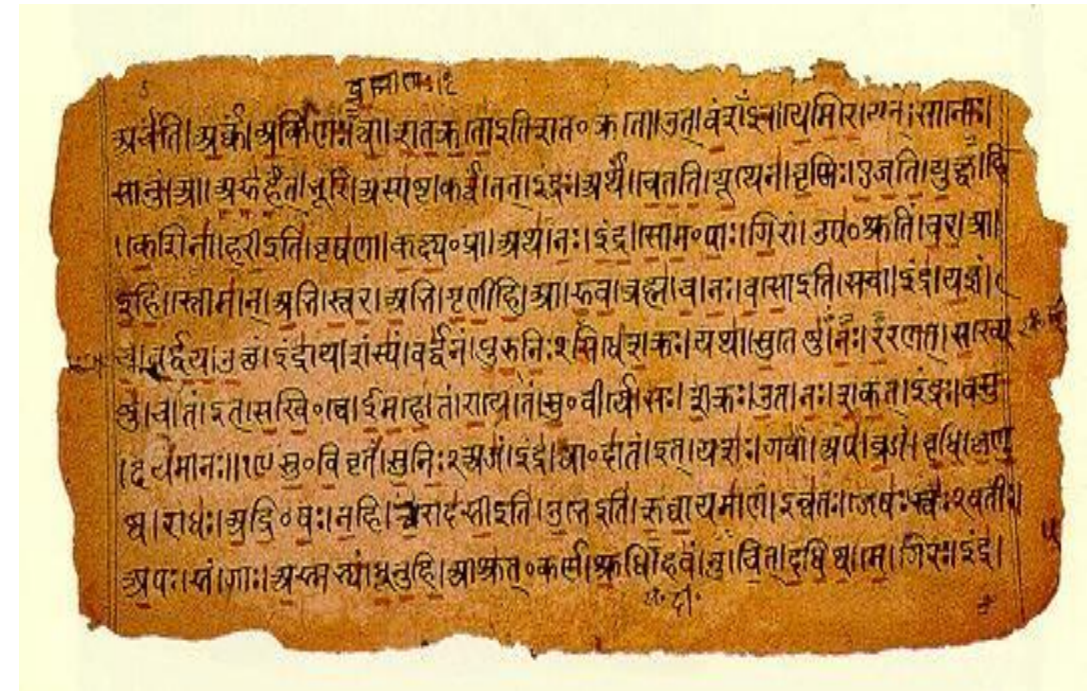 ब्रह्माणः।१
अर्चंति।अर्कं।अर्किणः।त्वा।शतक्रतोऽइतिशत॰क्रतो।उत्।वंशंऽइव।येमिरे।यत्।सानोः।
सानुं।आ।अरुहत्।भूरि।अस्पष्ट।कर्त्वं।तत्।इंद्रः।अर्थं।चेतति।यूथेन।वृष्णिः।एजति।युक्ष्व।हि
।केशिना।हरीऽइति।वृषणा।कक्ष्य॰प्रा।अथ।नः।इंद्र।सोम॰पाः।गिरां।उप॰श्रुतिं।चर।आ।
इहि।स्तोमान्।अभि।स्वर।अभि।गृणीहि।आ।रुव।ब्रह्म।च।नः।वसोऽइति।सचा।इंद्र।यज्ञं।
च।वर्द्धय।उक्थं।इंद्राय।शंस्यं।वर्द्धनं।पुरुनिः२सिधे।शक्रः।यथा।सुतेषु।नः।ररणत्।सख्ये
षु।च।तं।इत्।सखि॰त्वे।ईमहे।तं।राये।तं।सु॰वीर्ये।सः।शक्रः।उत।नः।शकत्।इंद्रः।वसु
।दयमानः॥१९ सु॰विवृतं।सुनिः२अजं।इंद्र।त्वा॰दातं।इत्।यशः।गवां।अप।व्रजं।वृधि।कृणु
ष्व।राधः।अद्रि॰वः।नहि।त्वा।रोदसीऽइति।उभेऽइति।ऋघायमाणं।इन्वतः।जेषः।स्वः२वतीः।
अपः।सं।गाः।अस्मभ्यं।धूनुहि।आश्रुत्॰कर्ण।श्रुधि।हवं।नु।चित्।दधिष्व।मे।गिरः।इंद्र।